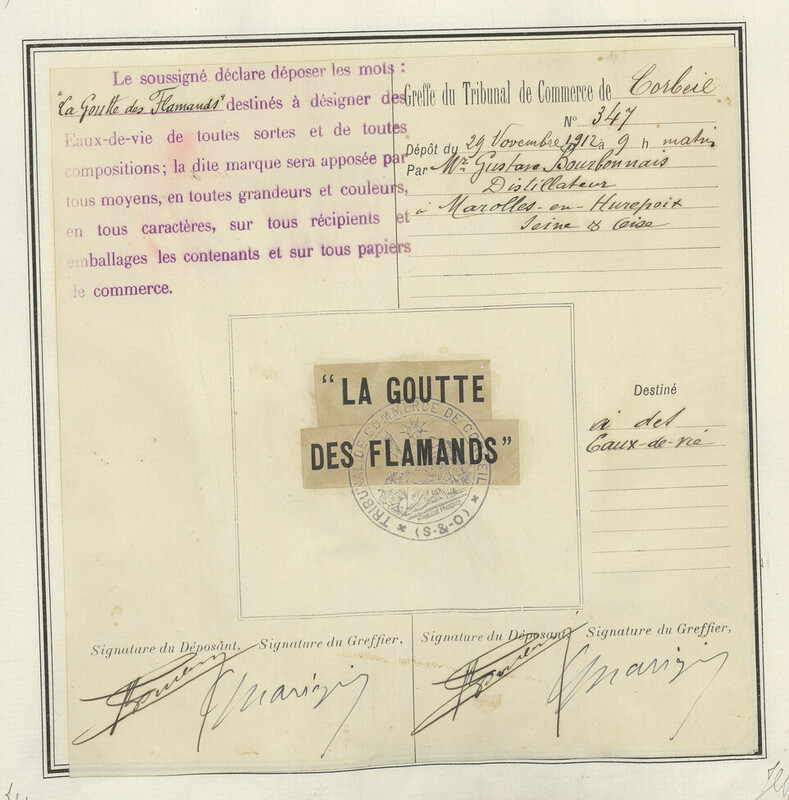 Le soussigné déclare déposer les mots :
"La Goutte des Flamands" destinés à désigner des
Eaux-de-vie de toutes sortes et de toutes
compositions; la dite marque sera apposée par
tous moyens, en toutes grandeurs et couleurs,
en tous caractères, sur tous récipients et
emballages les contenants et sur tous papiers
de commerce.
Greffe du Tribunal de Commerce de Corbeil
N° 347
Dépôt du 29 Novembre 1912 à 9 h matin
Par Mr Gustave Bourbonnais
Distillateur
à Marolles-en-Hurepoix
Seine & Oise
"LA GOUTTE
DES FLAMANDS"
TRIBUNAL DE COMMERCE DE CORBEIL
(S-&-O)
Destiné
à des
Eaux-de-vie
Signature du Déposant. Signature du Greffier.
Signature du Déposant, Signature du Greffier,